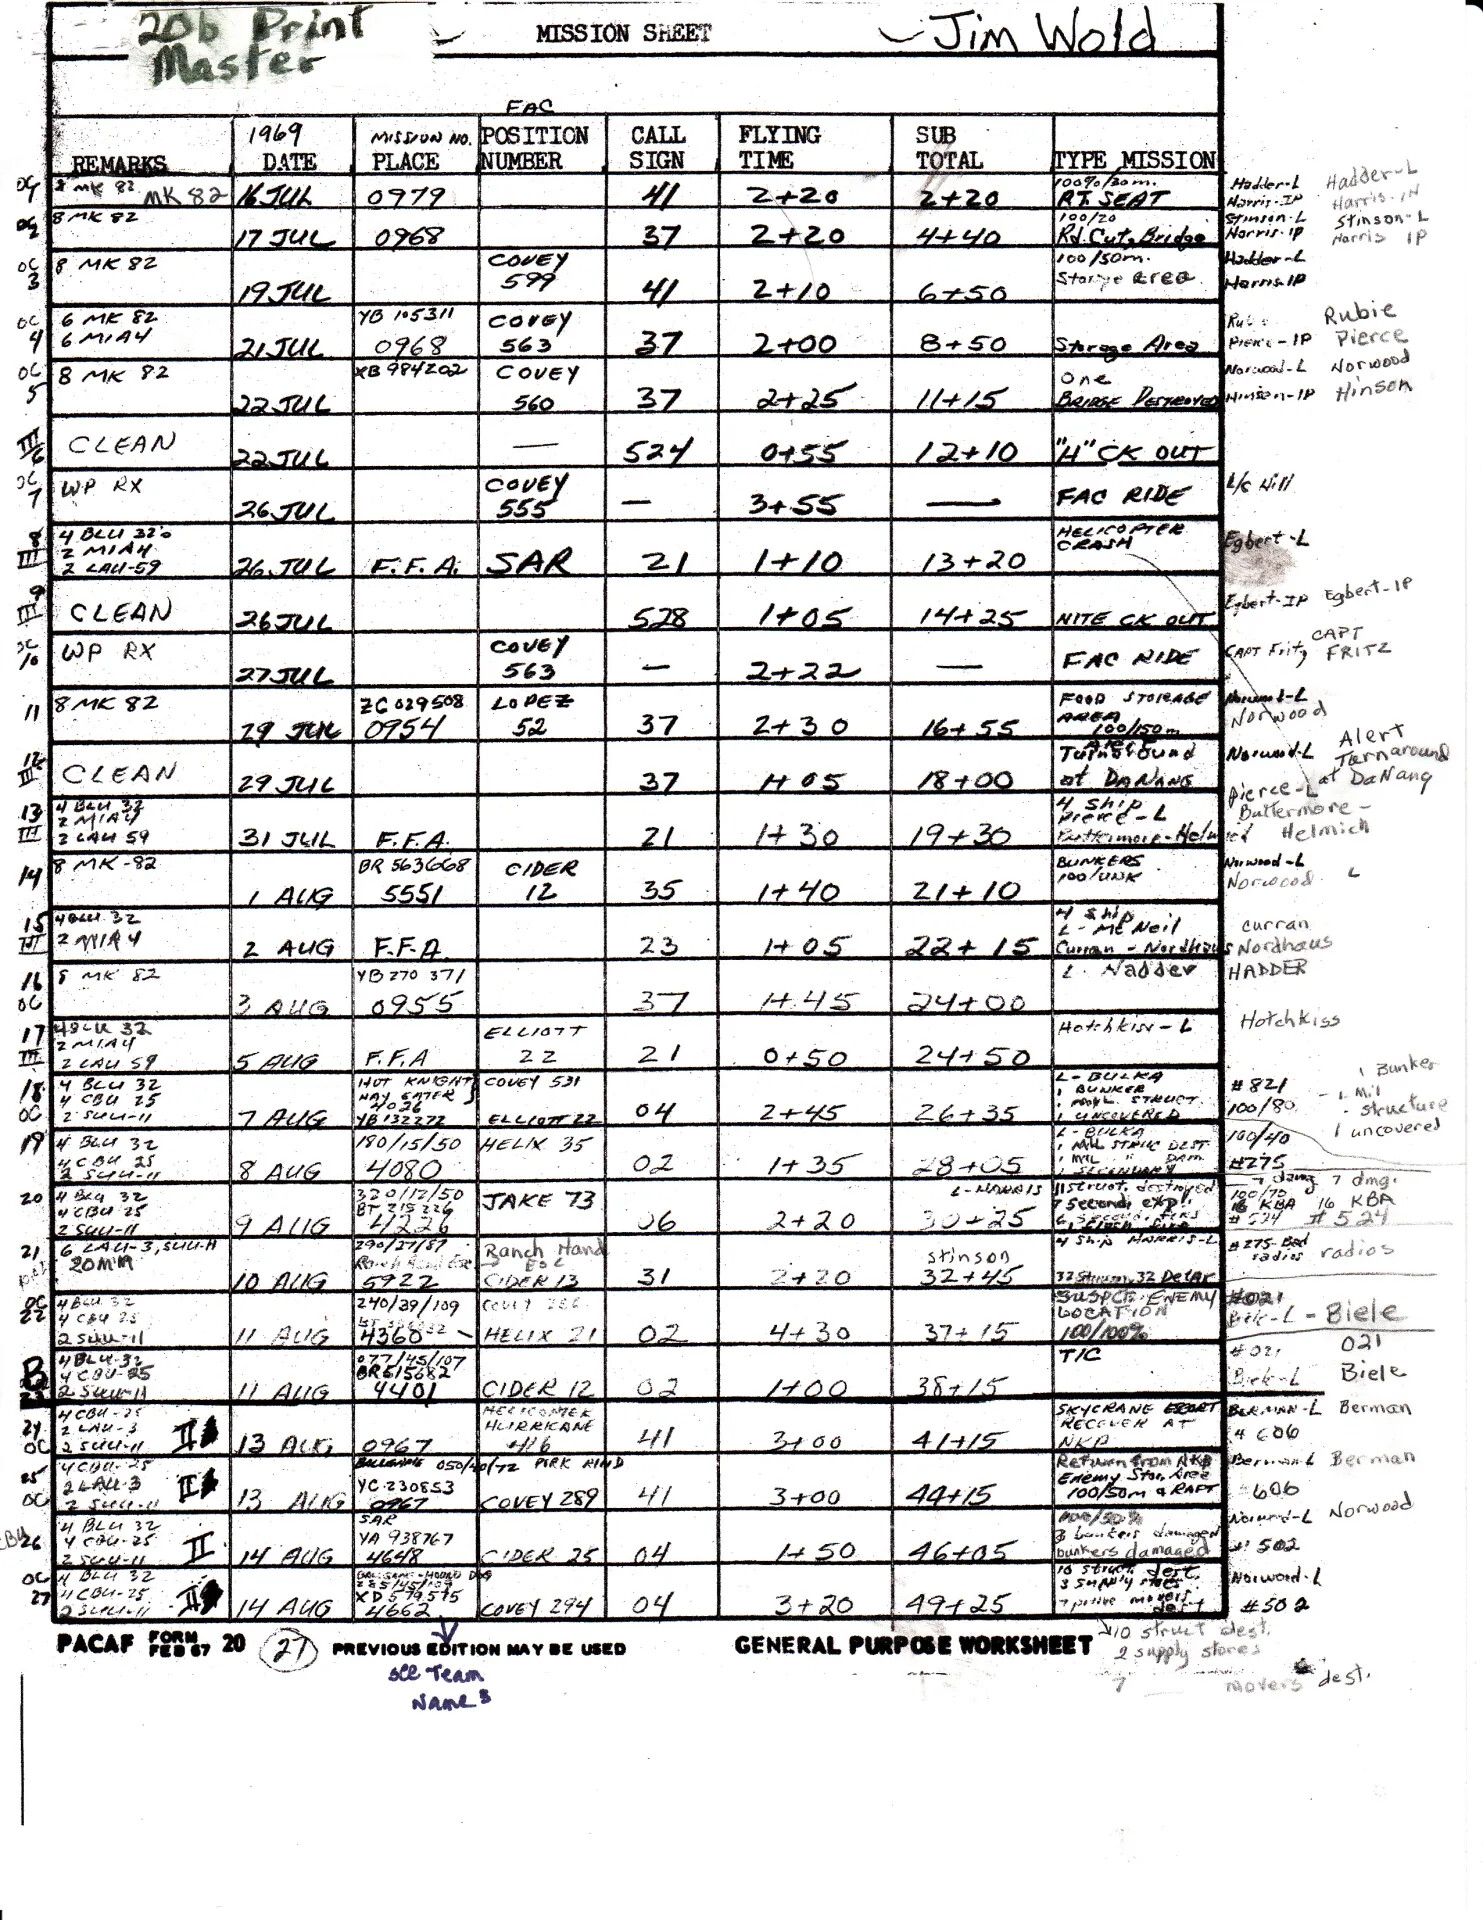 20b Print
Master
MISSION SHEET
Jim Wold
REMARKS 1969 DATE MISSION NO. PLACE FAC POSITION NUMBER CALL SIGN FLYING TIME SUB TOTAL TYPE MISSION
8 MK 82 MK 82 16 JUL 0979 41 2+20 2+20 100%/30m. RT. SEAT Hadder-L Hadder-L
Harris-IP Harris-IP
OC 2 8 MK 82 17 JUL 0968 37 2+20 4+40 100/20 Rd Cut, Bridge Stinson-L Stinson-L
Harris-IP Harris IP
OC 3 8 MK 82 19 JUL COVEY 599 41 2+10 6+50 100/50m. Storage area Hadder-L
Harris-IP
OC 4 6 MK 82 6 M1A4 21 JUL YB 105311 0968 COVEY 563 37 2+00 8+50 Storage Area Rubie
Pierce-IP Pierce
OC 5 8 MK 82 22 JUL XB 984202 COVEY 560 37 2+25 11+15 One BRIDGE DESTROYED Norwood-L Norwood
Hinson-IP Hinson
III 6 CLEAN 22 JUL — 524 0+55 12+10 "H" CK OUT
OC 7 WP RX 26 JUL COVEY 555 — 3+55 — FAC RIDE L/C Hill
8 III 4 BLU 32's 2 M1A4 2 LAU-59 26 JUL F.F.A. SAR 21 1+10 13+20 HELICOPTER CRASH Egbert-L
9 III CLEAN 26 JUL 528 1+05 14+25 NITE CK OUT Egbert-IP Egbert-IP
OC 10 WP RX 27 JUL COVEY 563 — 2+22 — FAC RIDE CAPT Fritz CAPT FRITZ
11 8 MK 82 29 JUL ZC 029508 0954 LOPEZ 52 37 2+30 16+55 FOOD STORAGE AREA 100/150m Norwood-L
Norwood
12 III CLEAN 29 JUL 37 1+05 18+00 Alert Turnaround at DANANG Norwood-L Alert Turnaround at DaNang
13 III 4 BLU 32 2 M1A4 2 LAU 59 31 JUL F.F.A. 21 1+30 19+30 4 ship Pierce-L Buttermore-Helmich Pierce-L
Buttermore-
Helmich
14 8 MK-82 1 AUG BR 563668 5551 CIDER 12 35 1+40 21+10 BUNKERS 100/UNK Norwood-L
Norwood L
15 III 4 BLU 32 2 M1A4 2 AUG F.F.A. 23 1+05 22+15 4 ship L-McNeil Curran-Nordhaus Curran
Nordhaus
16 OC 8 MK 82 3 AUG YB 270 371 0955 37 1+45 24+00 L. Hadder HADDER
17 III 4 BLU 32 2 M1A4 2 LAU 59 5 AUG F.F.A ELLIOTT 22 21 0+50 24+50 Hotchkiss-L Hotchkiss
18 OC 4 BLU 32 4 CBU 25 2 SUU-11 7 AUG HOT KNIGHT 4026 YB 132272 COVEY 531 ELLIOTT 22 04 2+45 26+35 L-BULKA 1 BUNKER STRUCT 1 UNCOVERED #821
100/80
1 Bunker
- 1 Mil
- structure
1 uncovered
19 4 BLU 32 4 CBU 25 2 SUU-11 8 AUG 180/15/50 4080 HELIX 35 02 1+35 28+05 L-BULKA 1 MIL STRUC DEST 1 MIL " DAM 1 SECONDARY 100/40
#275
20 4 BLU 32 4 CBU 25 2 SUU-11 9 AUG 320/12/50 BT 215226 4226 JAKE 73 06 2+20 L-HARRIS 30+25 11 struct. destroyed 7 second. expl. 100/70 7 dmg.
16 KBA 16 KBA
#524 #524
21 6 LAU-3, SUU-11 20MM 10 AUG 290/27/87 5922 Ranch Hand Esc CIDER 13 31 2+20 Stinson 32+45 4 ship HARRIS-L #275-Bad radios radios
OC 22 4 BLU 32 4 CBU 25 2 SUU-11 11 AUG 240/39/109 4360 HELIX 21 02 4+30 37+15 SUSPCT. ENEMY LOCATION 100/100% #021
Biele-L - Biele
B 23 4 BLU-32 4 CBU-25 2 SUU-11 11 AUG 077/45/107 BR 615682 4401 CIDER 12 02 1+00 38+15 T/C #021 021
Biele-L Biele
24 OC 4 CBU-25 2 LAU-3 2 SUU-11 II 13 AUG 0967 HELICOPTER HURRIKANE 41 3+00 41+15 SKYCRANE ESCORT RECOVER AT NKP BERMAN-L Berman
#606
25 OC 4 CBU-25 2 LAU-3 2 SUU-11 II 13 AUG YC-230853 0967 COVEY 289 41 3+00 44+15 Return from NKP Enemy Stor. Area 100/50m & RAFT Berman-L Berman
606
26 4 BLU 32 4 CBU-25 2 SUU-11 II 14 AUG SAR YA 938767 4648 CIDER 25 04 1+50 46+05 100/50% 3 bunkers damaged bunkers damaged Norwood-L Norwood
# 502
OC 27 4 BLU 32 4 CBU-25 2 SUU-11 II 14 AUG 285/45/109 XD 579575 4662 COVEY 294 04 3+20 49+25 10 struct dest. Norwood-L
#502
PACAF FORM FEB 67 20 27 PREVIOUS EDITION MAY BE USED GENERAL PURPOSE WORKSHEET
10 struct dest.
2 supply stores
7 movers dest.
See Team
Names